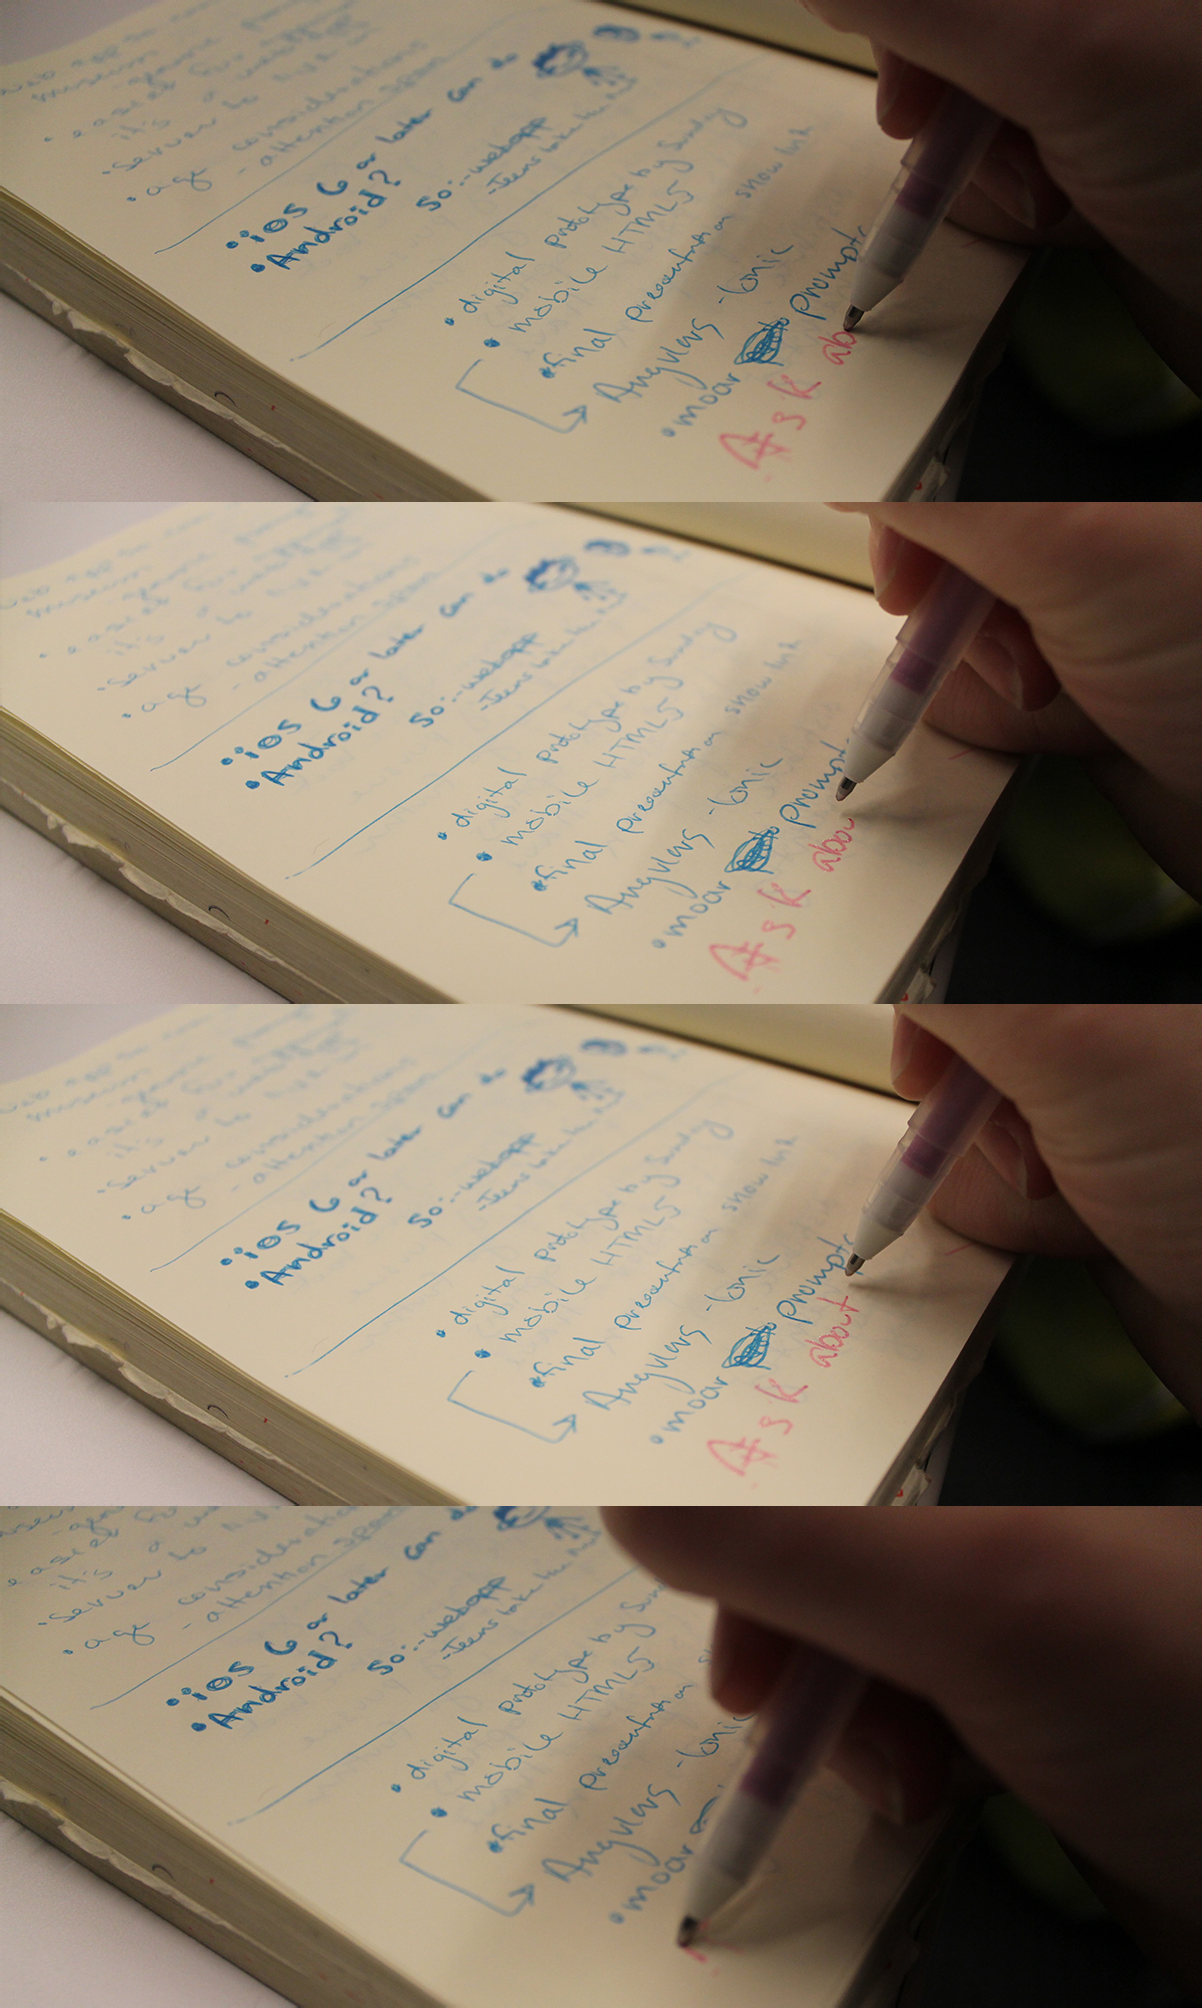 museum
it's a
server to
age considerations
- attention span
iOS 6 or later can do
Android?
So: - webapp
digital prototype by Sunday
mobile HTML5
final presentation show
AngularJS - Ionic
moar prompts
Ask ab
museum
it's a
server to
age considerations
- attention span
iOS 6 or later can do
Android?
So: - webapp
digital prototype by Sunday
mobile HTML5
final presentation show
AngularJS - Ionic
moar prompt
Ask abou
museum
it's a
server to
age considerations
- attention span
iOS 6 or later can do
Android?
So: - webapp
digital prototype by Sunday
mobile HTML5
final presentation show
AngularJS - Ionic
moar prompts
Ask about
it's a
server to
age consideration
- attention span
iOS 6 or later can do
Android?
So: - webapp
digital prototype by
mobile HTML5
final presentation
AngularJS - Ionic
moar